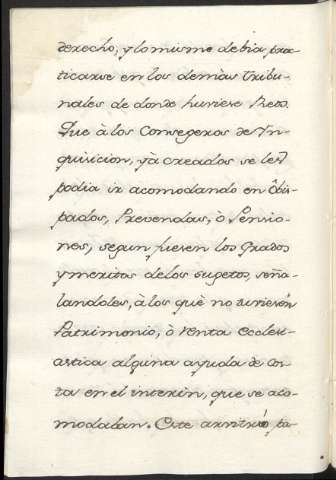 derecho, y lo mismo debia prac-
ticarse en los demàs tribu-
nales de donde huviese Reos.
Que à los Consegeros de In-
quisicion, yà creados se les
podia ir acomodando en Obis-
pados, Prevendas, ò Pensio-
nes, segun fuesen los grados
y meritos de los sugetos, seña-
landoles, à los què no tuviesen
Patrimonio, ò renta eccles-
astica alguna ayuda de cos-
ta en el interin, que se aco-
modaban. Este arvitrio, pa-